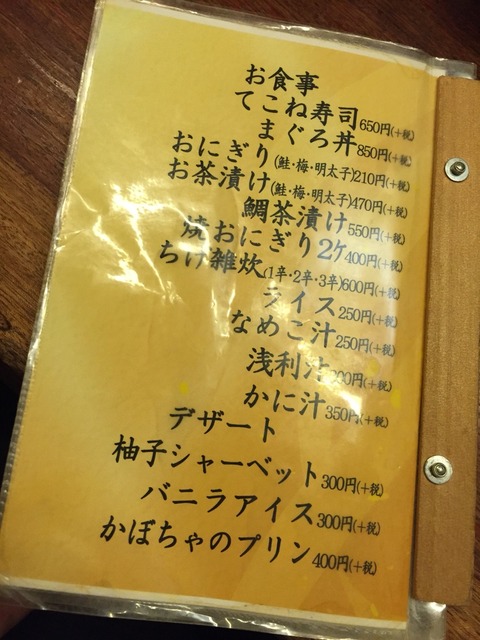 お食事
てこね寿司650円(+税)
まぐろ丼850円(+税)
おにぎり(鮭・梅・明太子)210円(+税)
お茶漬け(鮭・梅・明太子)470円(+税)
鯛茶漬け550円(+税)
焼おにぎり2ケ400円(+税)
ちげ雑炊(1辛・2辛・3辛)600円(+税)
ライス250円(+税)
なめこ汁250円(+税)
浅利汁 円(+税)
かに汁350円(+税)
デザート
柚子シャーベット300円(+税)
バニラアイス300円(+税)
かぼちゃのプリン400円(+税)